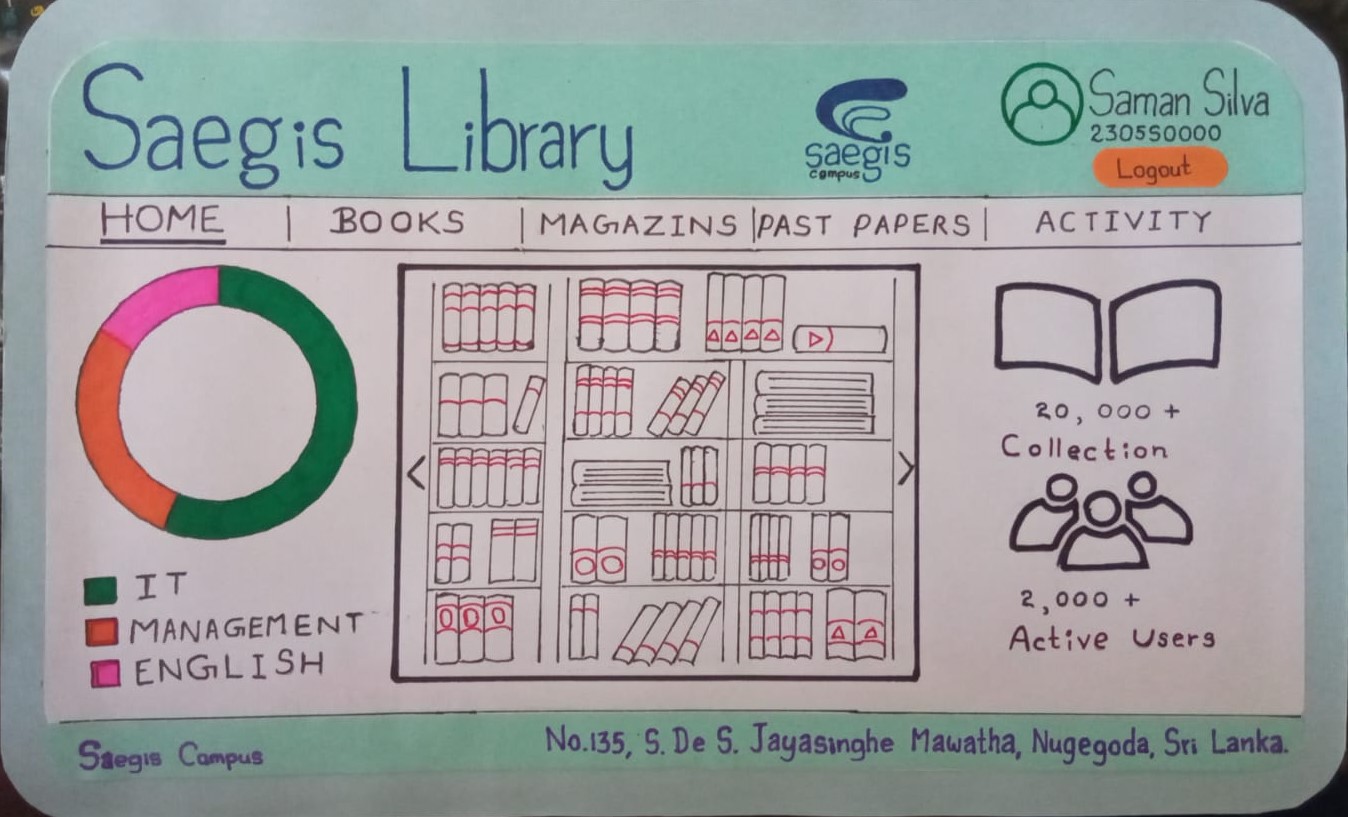 Saegis Library
saegis
campus
Saman Silva
2305S0000
Logout
HOME | BOOKS | MAGAZINS | PAST PAPERS | ACTIVITY
IT
MANAGEMENT
ENGLISH
<
>
20,000+
Collection
2,000+
Active Users
Saegis Campus
No.135, S. De S. Jayasinghe Mawatha, Nugegoda, Sri Lanka.